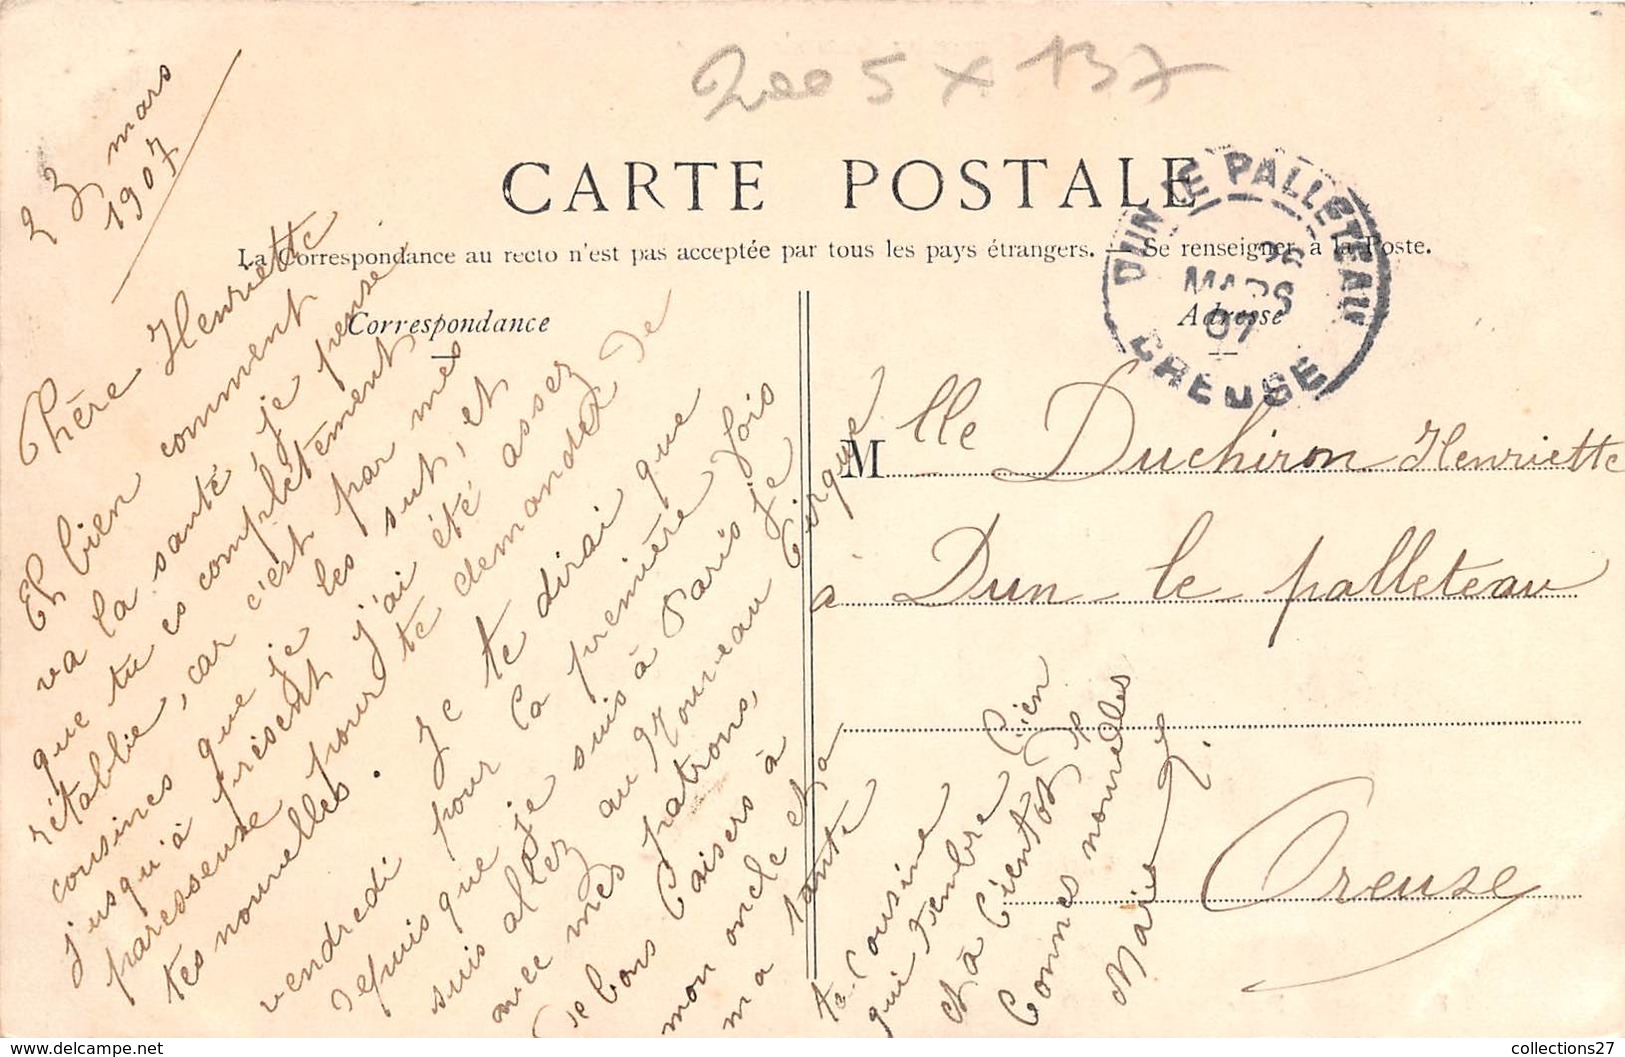 23 mars
1907
CARTE POSTALE
La Correspondance au recto n'est pas acceptée par tous les pays étrangers. — Se renseigner à la Poste.
Correspondance
Adresse
DUN LE PALLETEAU
MARS
07
CREUSE
Chère Henriette
Eh bien comment
va la santé, je pense
que tu es complétement
rétablie, car c'est par mes
cousines que je les sut, et
jusqu'à présent j'ai été assez
paresseuse pour te demander de
tes nouvelles. Je te dirai que
vendredi pour la première fois
depuis que je suis à Paris je
suis allez au Nouveau Cirque
avec mes patrons,
de bons baisers à
mon oncle et a
ma tante
ta Cousine
qui t'embrasse bien
et à bientôt de
bonnes nouvelles
Marie
Mlle Duchiron Henriette
à Dun le palleteau
Creuse
collections27